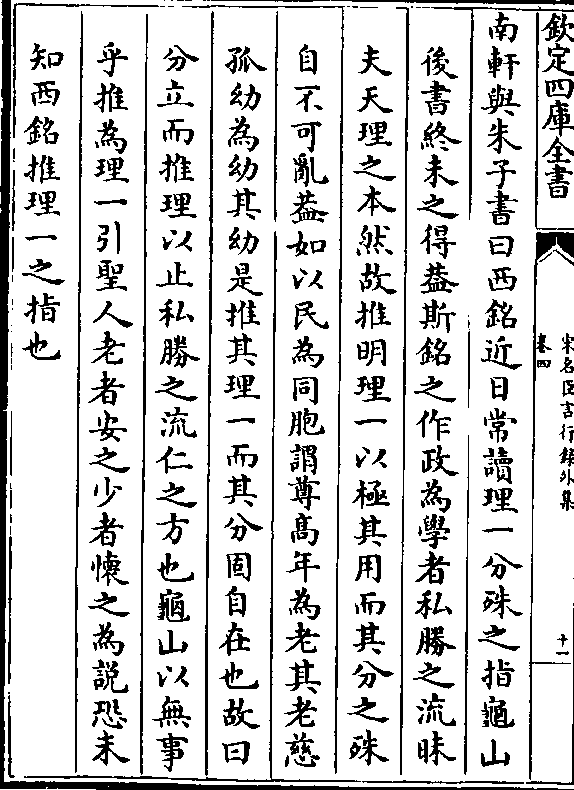 欽定四庫全書
宋名臣言行錄外集
卷四
十一
南軒與朱子書曰西銘近日常讀理一分殊之指龜山
後書終未之得葢斯銘之作政為學者私勝之流昧
夫天理之本然故推明理一以極其用而其分之殊
自不可亂葢如以民為同胞謂尊髙年為老其老慈
孤幼為幼其幼是推其理一而其分固自在也故曰
分立而推理以止私勝之流仁之方也龜山以無事
乎推為理一引聖人老者安之少者懷之為說恐未
知西銘推理一之指也